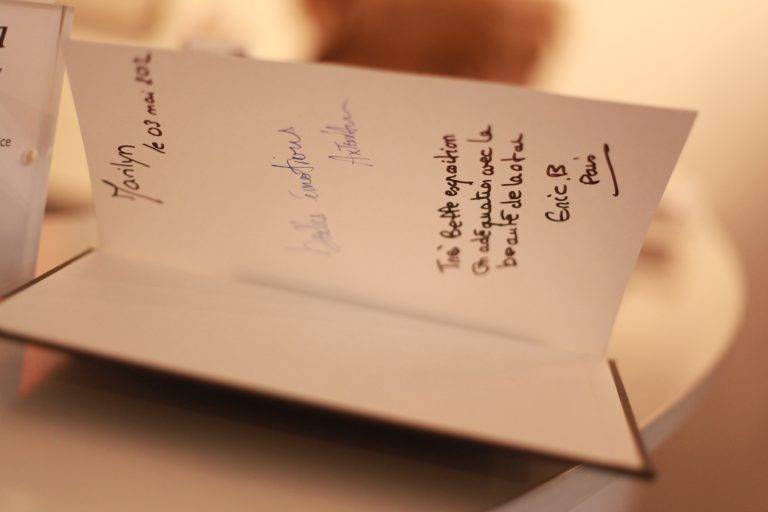 Marilyn
le 03 mai 2012
Belles émotions
Très Belle exposition
En adéquation avec la
beauté de la star
Eric.B
Paris
ce